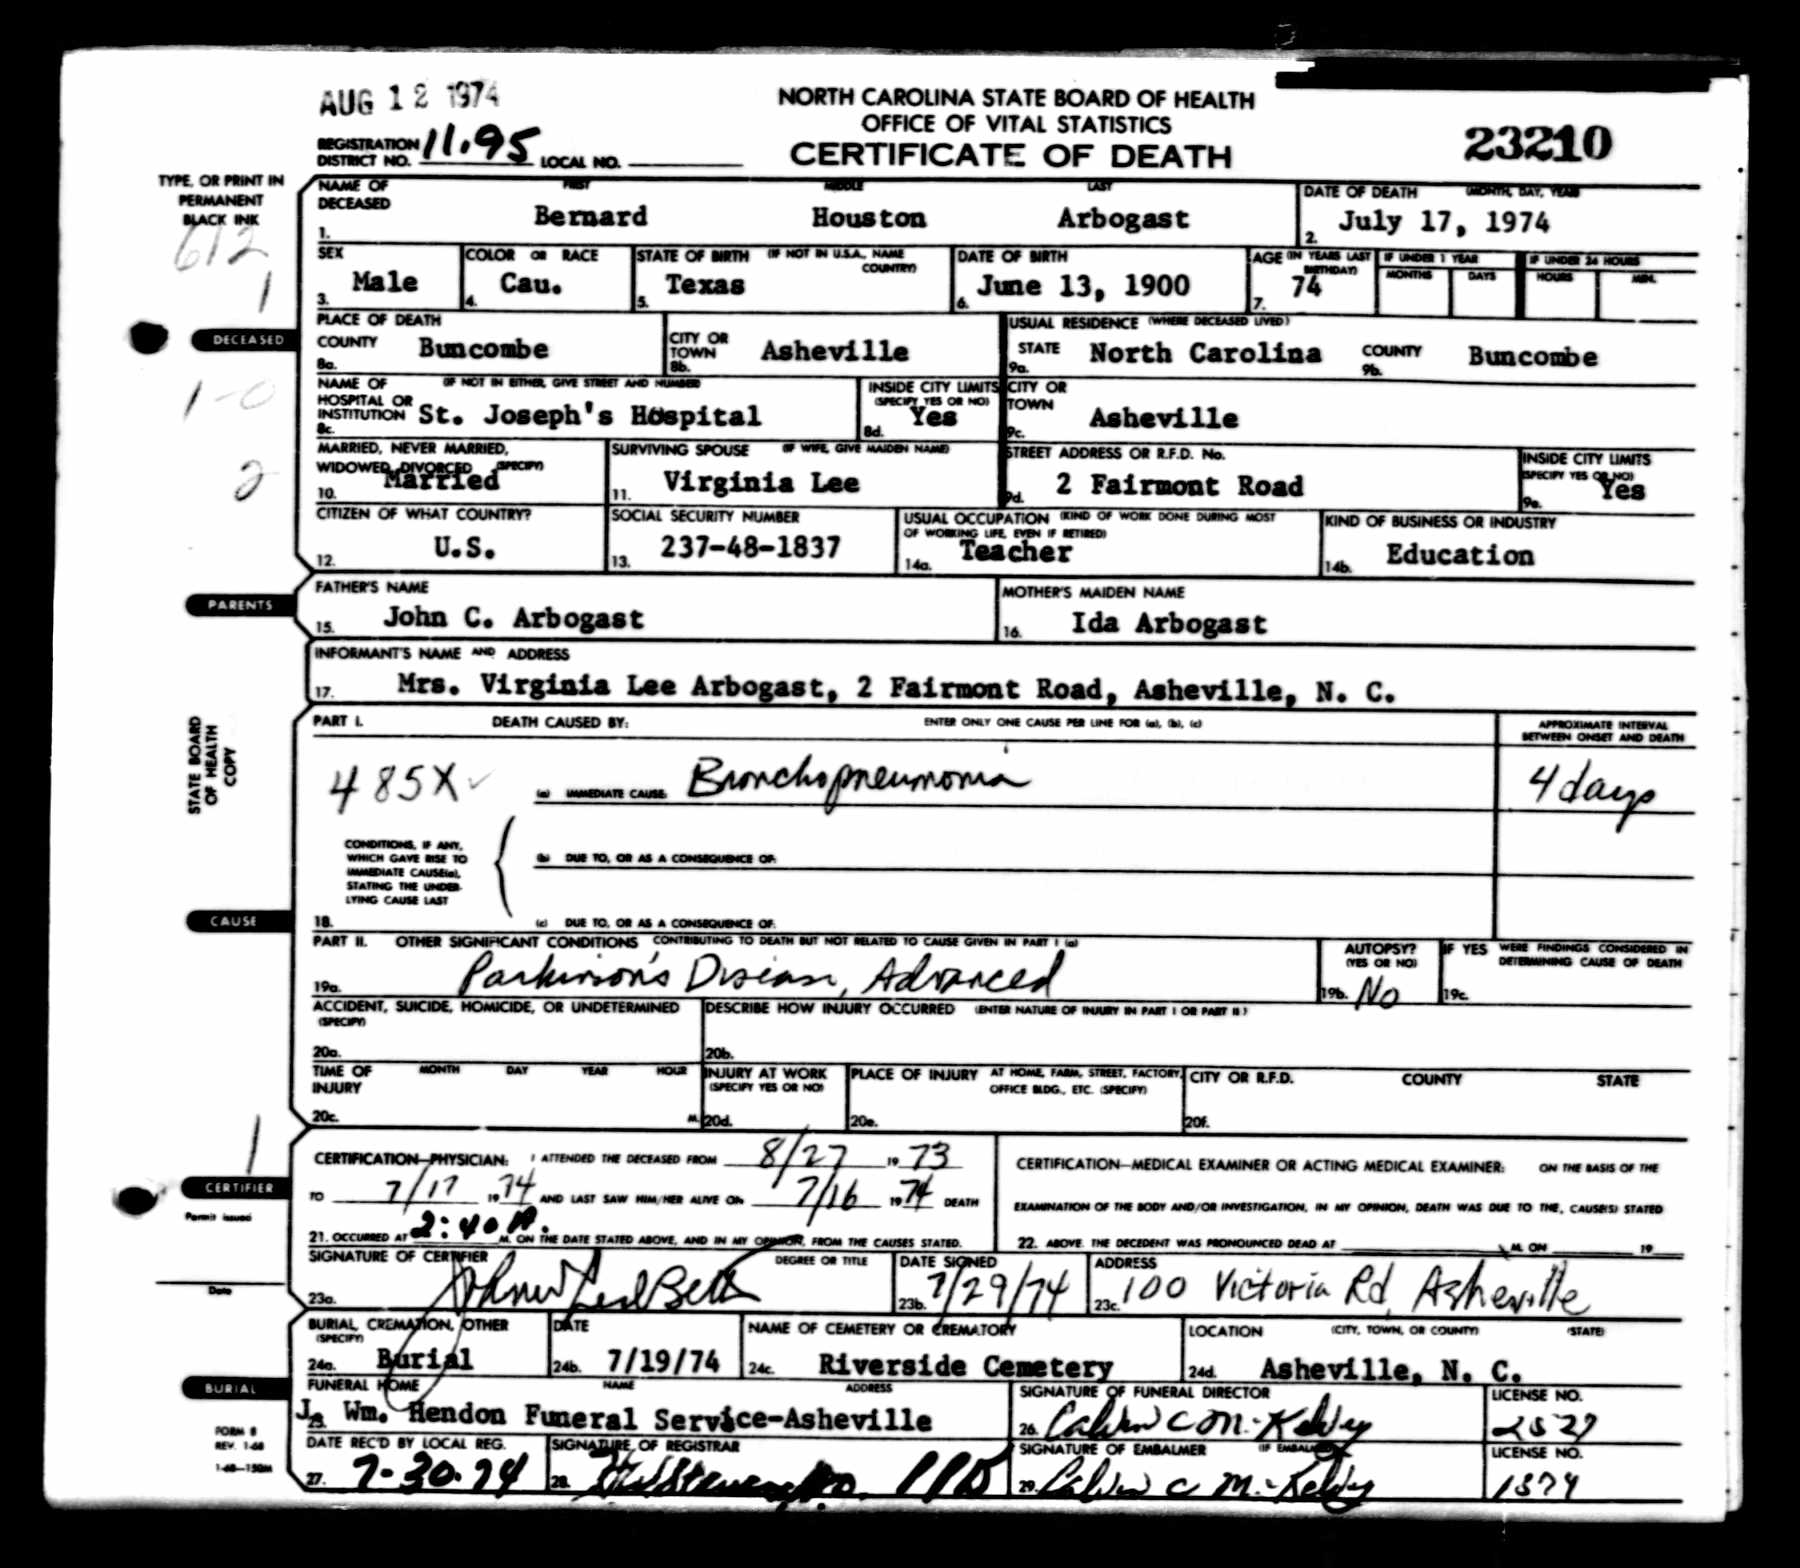 AUG 12 1974
NORTH CAROLINA STATE BOARD OF HEALTH
OFFICE OF VITAL STATISTICS
CERTIFICATE OF DEATH
23210
REGISTRATION DISTRICT NO. 11.95 LOCAL NO.
TYPE, OR PRINT IN
PERMANENT
BLACK INK
612
1
NAME OF DECEASED FIRST MIDDLE LAST
1. Bernard Houston Arbogast
DATE OF DEATH (MONTH, DAY, YEAR)
2. July 17, 1974
SEX
3. Male
COLOR OR RACE
4. Cau.
STATE OF BIRTH (IF NOT IN U.S.A., NAME COUNTRY)
5. Texas
DATE OF BIRTH
6. June 13, 1900
AGE (IN YEARS LAST BIRTHDAY)
7. 74
IF UNDER 1 YEAR
MONTHS DAYS
IF UNDER 24 HOURS
HOURS MIN.
DECEASED
PLACE OF DEATH
COUNTY
8a. Buncombe
CITY OR TOWN
8b. Asheville
USUAL RESIDENCE (WHERE DECEASED LIVED)
STATE
9a. North Carolina
COUNTY
9b. Buncombe
1-0
NAME OF HOSPITAL OR INSTITUTION (IF NOT IN EITHER, GIVE STREET AND NUMBER)
8c. St. Joseph's Hospital
INSIDE CITY LIMITS
(SPECIFY YES OR NO)
8d. Yes
CITY OR TOWN
9c. Asheville
2
MARRIED, NEVER MARRIED,
WIDOWED, DIVORCED (SPECIFY)
10. Married
SURVIVING SPOUSE (IF WIFE, GIVE MAIDEN NAME)
11. Virginia Lee
STREET ADDRESS OR R.F.D. No.
9d. 2 Fairmont Road
INSIDE CITY LIMITS
(SPECIFY YES OR NO)
9e. Yes
CITIZEN OF WHAT COUNTRY?
12. U.S.
SOCIAL SECURITY NUMBER
13. 237-48-1837
USUAL OCCUPATION (KIND OF WORK DONE DURING MOST
OF WORKING LIFE, EVEN IF RETIRED)
14a. Teacher
KIND OF BUSINESS OR INDUSTRY
14b. Education
PARENTS
FATHER'S NAME
15. John C. Arbogast
MOTHER'S MAIDEN NAME
16. Ida Arbogast
INFORMANT'S NAME AND ADDRESS
17. Mrs. Virginia Lee Arbogast, 2 Fairmont Road, Asheville, N. C.
STATE BOARD
OF HEALTH
COPY
PART I. DEATH CAUSED BY: ENTER ONLY ONE CAUSE PER LINE FOR (a), (b), (c)
APPROXIMATE INTERVAL
BETWEEN ONSET AND DEATH
485X
(a) IMMEDIATE CAUSE: Bronchopneumonia
4 days
CONDITIONS, IF ANY,
WHICH GAVE RISE TO
IMMEDIATE CAUSE(a),
STATING THE UNDER-
LYING CAUSE LAST
(b) DUE TO, OR AS A CONSEQUENCE OF:
CAUSE
18. (c) DUE TO, OR AS A CONSEQUENCE OF:
PART II. OTHER SIGNIFICANT CONDITIONS CONTRIBUTING TO DEATH BUT NOT RELATED TO CAUSE GIVEN IN PART I (a)
19a. Parkinson's Disease, Advanced
AUTOPSY?
(YES OR NO)
19b. No
IF YES WERE FINDINGS CONSIDERED IN
DETERMINING CAUSE OF DEATH
19c.
ACCIDENT, SUICIDE, HOMICIDE, OR UNDETERMINED
(SPECIFY)
20a.
DESCRIBE HOW INJURY OCCURRED (ENTER NATURE OF INJURY IN PART I OR PART II)
20b.
TIME OF INJURY MONTH DAY YEAR HOUR
20c. M.
INJURY AT WORK
(SPECIFY YES OR NO)
20d.
PLACE OF INJURY AT HOME, FARM, STREET, FACTORY,
OFFICE BLDG., ETC. (SPECIFY)
20e.
CITY OR R.F.D. COUNTY STATE
20f.
1
CERTIFIER
Permit issued
Date
CERTIFICATION—PHYSICIAN: I ATTENDED THE DECEASED FROM 8/27 19 73
TO 7/17 19 74 AND LAST SAW HIM/HER ALIVE ON 7/16 19 74 DEATH
21. OCCURRED AT 2:40 A. M. ON THE DATE STATED ABOVE, AND IN MY OPINION, FROM THE CAUSES STATED.
CERTIFICATION—MEDICAL EXAMINER OR ACTING MEDICAL EXAMINER: ON THE BASIS OF THE
EXAMINATION OF THE BODY AND/OR INVESTIGATION, IN MY OPINION, DEATH WAS DUE TO THE, CAUSE(S) STATED
22. ABOVE. THE DECEDENT WAS PRONOUNCED DEAD AT M. ON 19
SIGNATURE OF CERTIFIER DEGREE OR TITLE
23a.
DATE SIGNED
23b. 7/29/74
ADDRESS
23c. 100 Victoria Rd, Asheville
BURIAL, CREMATION, OTHER
(SPECIFY)
24a. Burial
DATE
24b. 7/19/74
NAME OF CEMETERY OR CREMATORY
24c. Riverside Cemetery
LOCATION (CITY, TOWN, OR COUNTY) (STATE)
24d. Asheville, N. C.
BURIAL
FUNERAL HOME NAME ADDRESS
25. J. Wm. Hendon Funeral Service-Asheville
SIGNATURE OF FUNERAL DIRECTOR
26. Calvin C McKelvy
LICENSE NO.
2527
FORM 8
REV. 1-68
1-68—150M
DATE REC'D BY LOCAL REG.
27. 7-30-74
SIGNATURE OF REGISTRAR
28.
SIGNATURE OF EMBALMER (IF EMBALMED)
29. Calvin C McKelvy
LICENSE NO.
1374